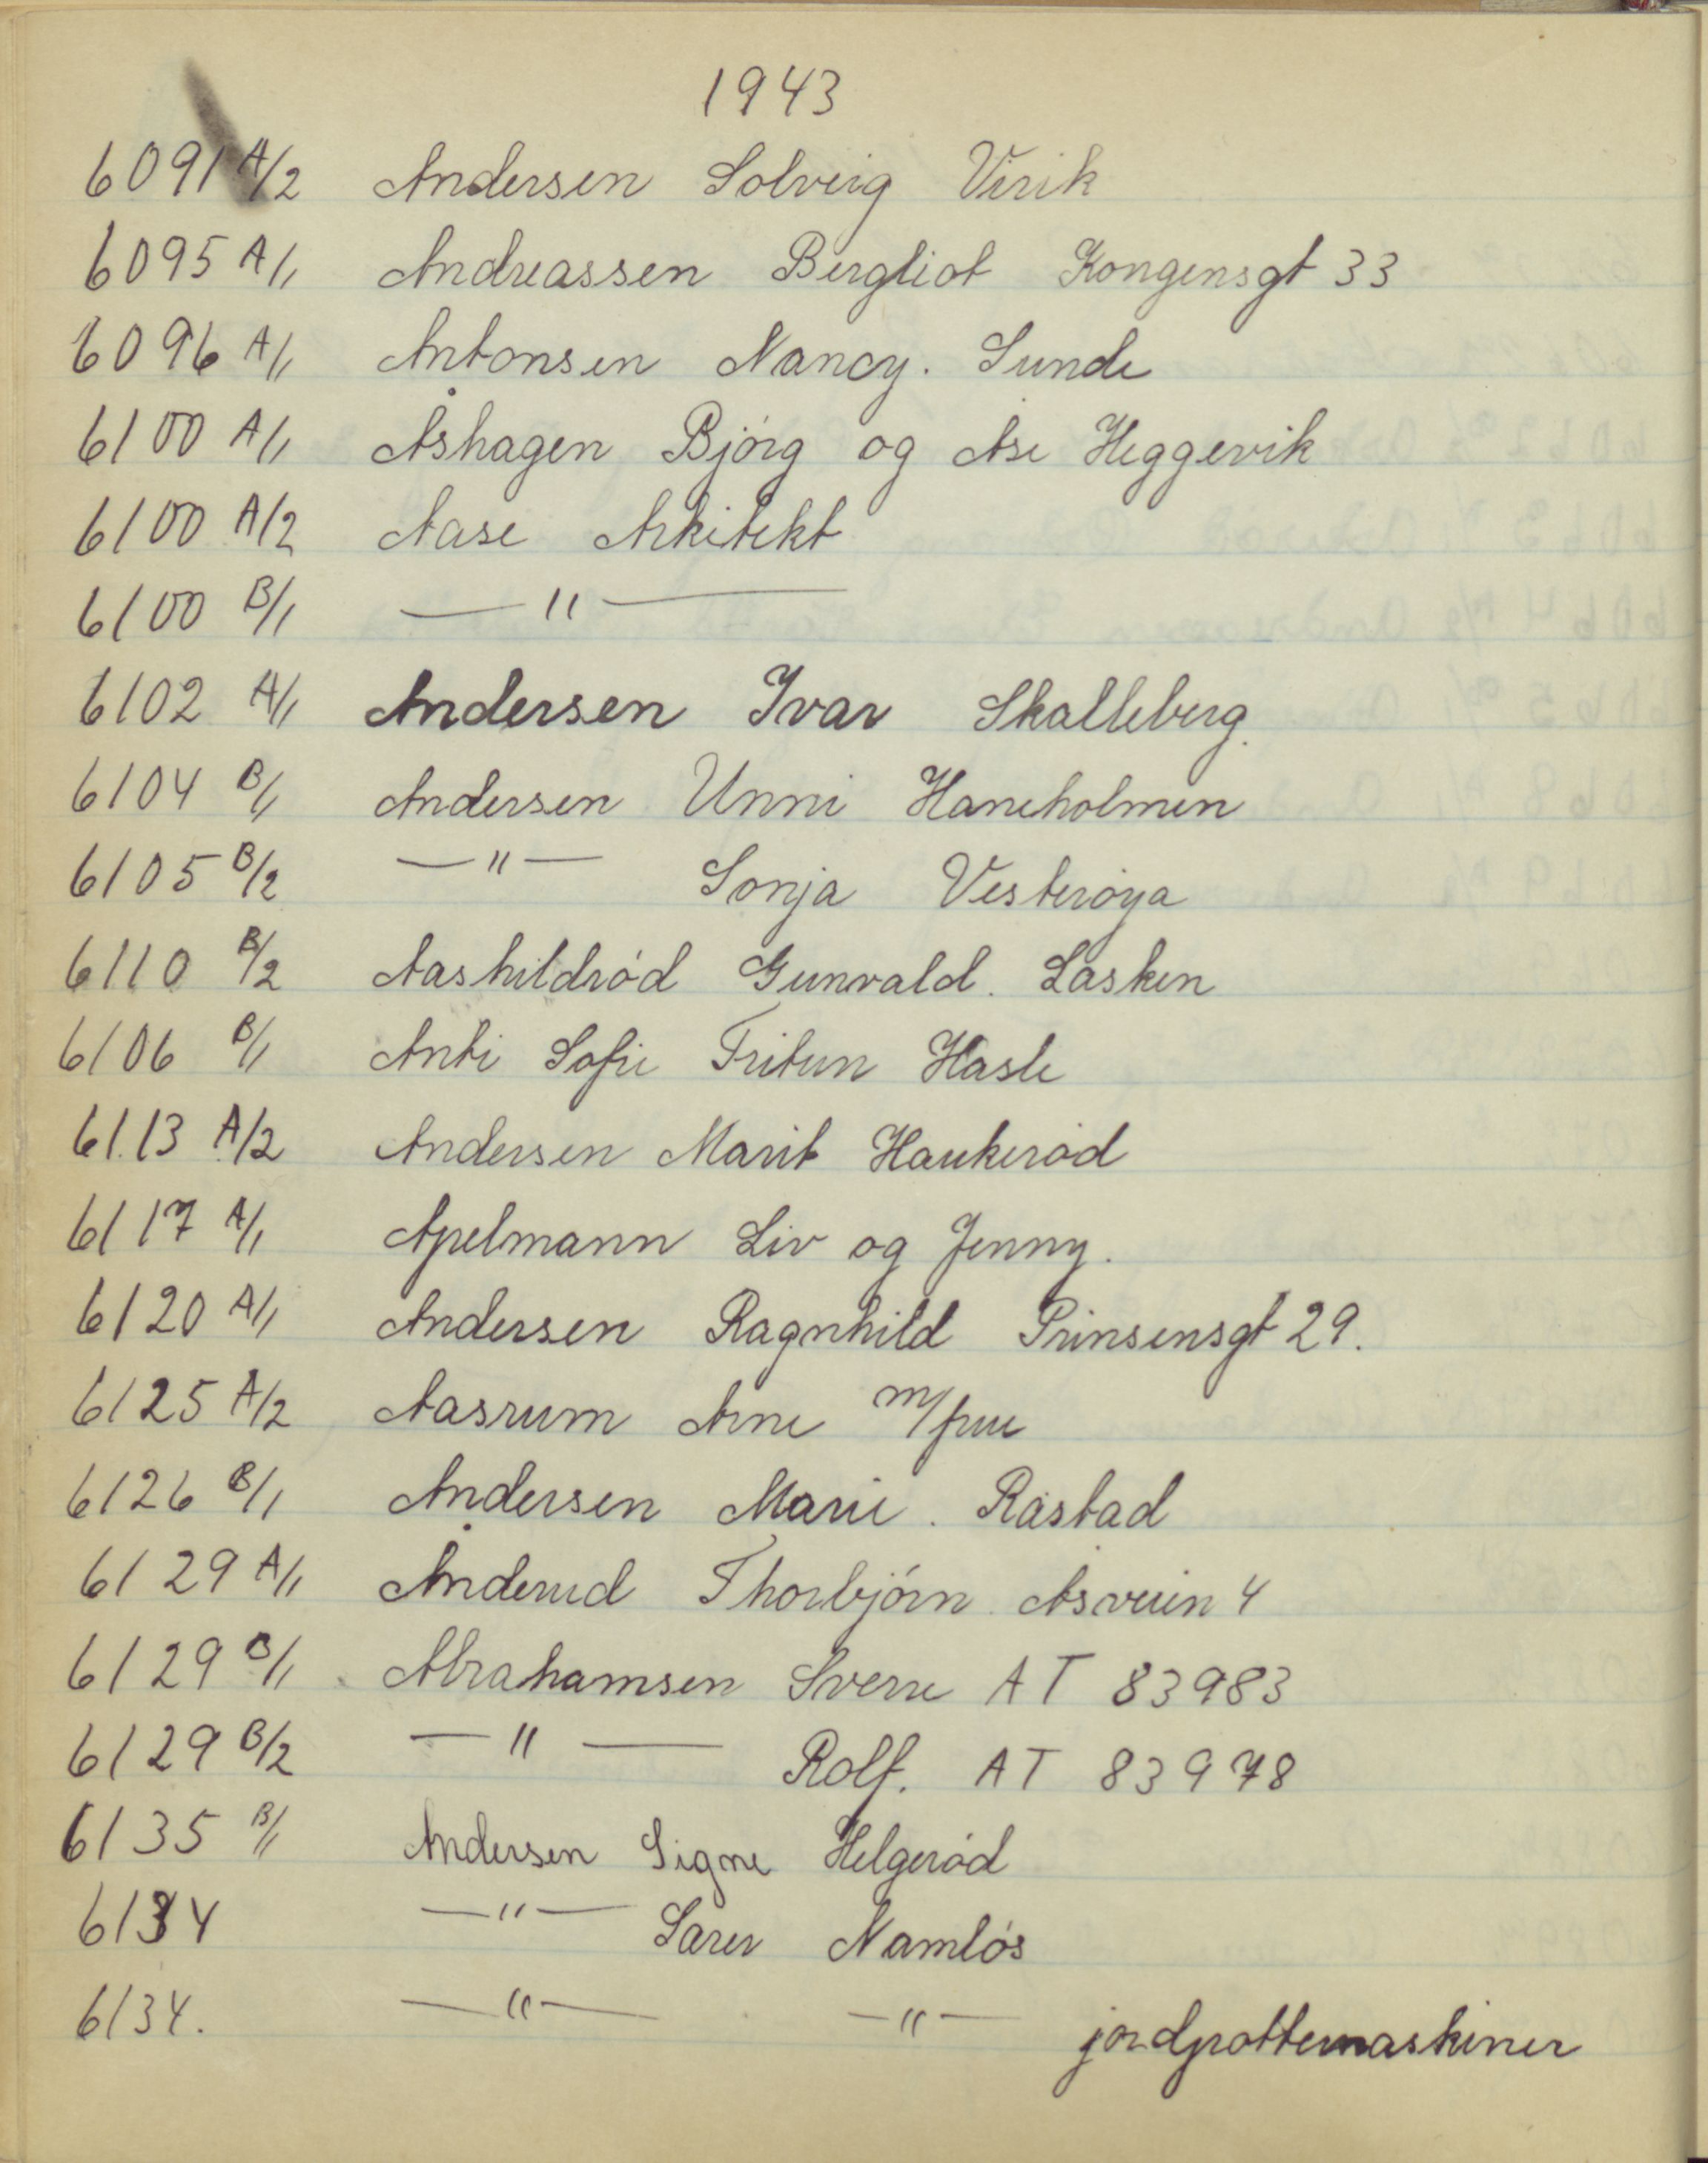 1943
6091 A/2 Andersen Solveig Virik
6095 A/1 Andreassen Bergliot Kongensgt 33
6096 A/1 Antonsen Nancy. Sunde
6100 A/1 Åshagen Bjórg og Åse Heggevik
6100 A/2 Aase Arkitekt
6100 B/1 — " —
6102 A/1 Andersen Ivar Skalleberg.
6104 B/1 Andersen Unni Haneholmen
6105 B/2 — " — Sonja Vesteróya
6110 B/2 Aashildród Gunvald. Lasken
6106 B/1 Anti Sofie Tritun Hasle
6113 A/2 Andersen Marit Haukeród
6117 A/1 Apelmann Liv og Jenny.
6120 A/1 Andersen Ragnhild Prinsensgt 29.
6125 A/2 Aasrum Arne m/frue
6126 B/1 Andersen Marie. Råstad
6129 A/1 Anderud Thorbjórn Åsveien 4
6129 B/1 Abrahamsen Sverre AT 83983
6129 B/2 — " — Rolf. AT 83978
6135 B/1 Andersen Signe Helgeród
6134 — " — Sører Namlós
6134. — " — — " — jordpottemaskiner